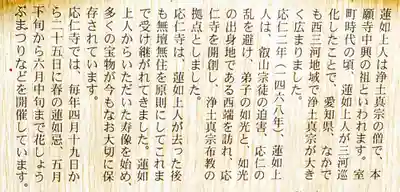 蓮如上人は浄土真宗の僧で、本
願寺中興の祖といわれます。室
町時代の頃、蓮如上人が三河巡
化したことで、愛知県、なかで
も西三河地域で浄土真宗が大き
く広まりました。
応仁二年（一四六八年）、蓮如上
人は、叡山宗徒の迫害、応仁の
乱を避け、弟子の如光と、如光
の出身地である西端を訪れ、応
仁寺を開創し、浄土真宗布教の
拠点としました。
応仁寺は、蓮如上人が去った後
も無住を原則にしてこれま
で受け継がれてきました。蓮如
上人からいただいた寿像を始め、
多くの宝物が今もなお大切に保
存されています。
応仁寺では、毎年四月十九日か
ら二十五日に春の蓮如忌、五月
下旬から六月中旬まで花しょう
ぶまつりなどを開催しています。